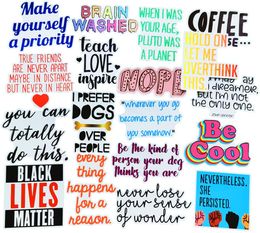 Make
yourself
a priority
BRAIN
WASHED
WHEN I WAS
YOUR AGE,
PLUTO WAS
A PLANET
COFFEE
HOLD ON
LET ME
OVERTHINK
THIS.
TRUE FRIENDS
ARE NEVER APART
MAYBE IN DISTANCE
BUT NEVER IN HEART
teach
love
inspire
NOPE
a dreamer,
but I'm not
the only one.
I PREFER
DOGS
OVER
PEOPLE
wherever you go
becomes a part of
you somehow
you can
totally
do this.
Be
Cool
Be the kind of
person your dog
thinks you are!
every
thing
happens
for a
reason
BLACK
LIVES
MATTER
never lose
your sense
of wonder
NEVERTHELESS,
SHE
PERSISTED.